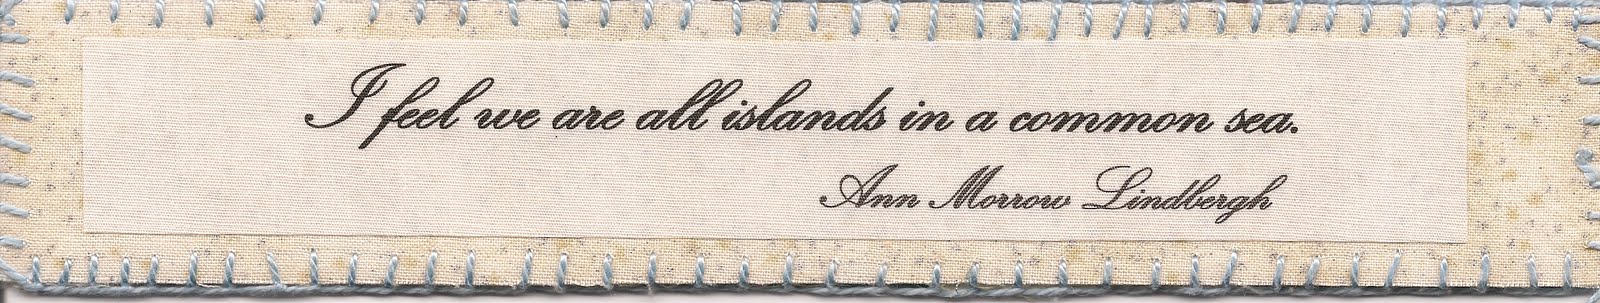 I feel we are all islands in a common sea.
Ann Morrow Lindbergh